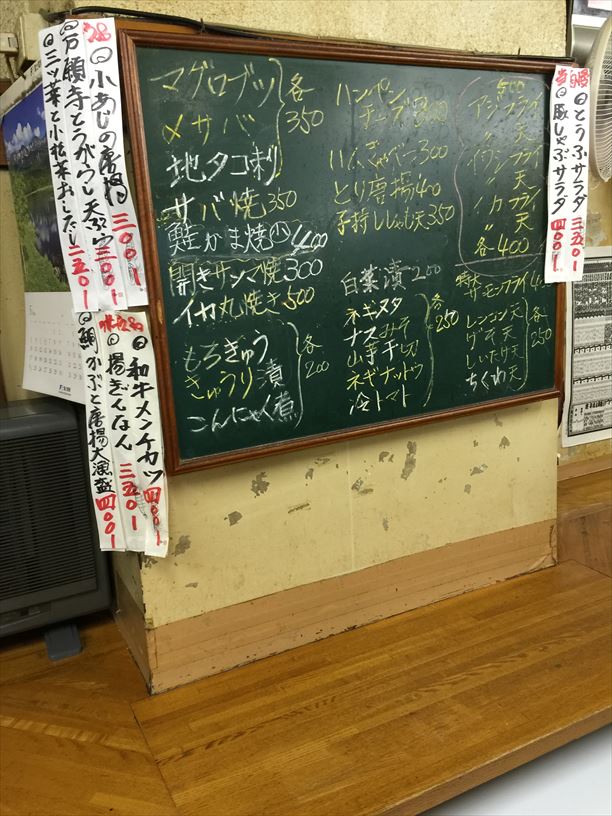 小あじの唐揚 三〇〇
万願寺とうがらし天ぷら 三〇〇
三ツ葉と小松菜おしたし 二五〇
和牛メンチカツ 四〇〇
揚ぎんなん 三五〇
鯛かぶと唐揚大漁盛 四〇〇
マグロブツ
〆サバ
地タコ刺
各350
サバ焼350
鮭かま焼 400
開きサンマ焼300
イカ丸焼き500
もろきゅう
きゅうり漬
こんにゃく煮
各200
ハンペンチーズ300
ハムきゃべつ300
とり唐揚400
子持ししゃも天350
白菜漬200
ネギヌタ
ナスみそ
山芋千切
ネギナットウ
冷トマト
各250
500
アジフライ
〃天
イワシフライ
〃天
イカフライ
〃天
各400
特大サーモンフライ
レンコン天
ゲソ天
しいたけ天
ちくわ天
各250
とうふサラダ 三五〇
豚しゃぶサラダ 四〇〇